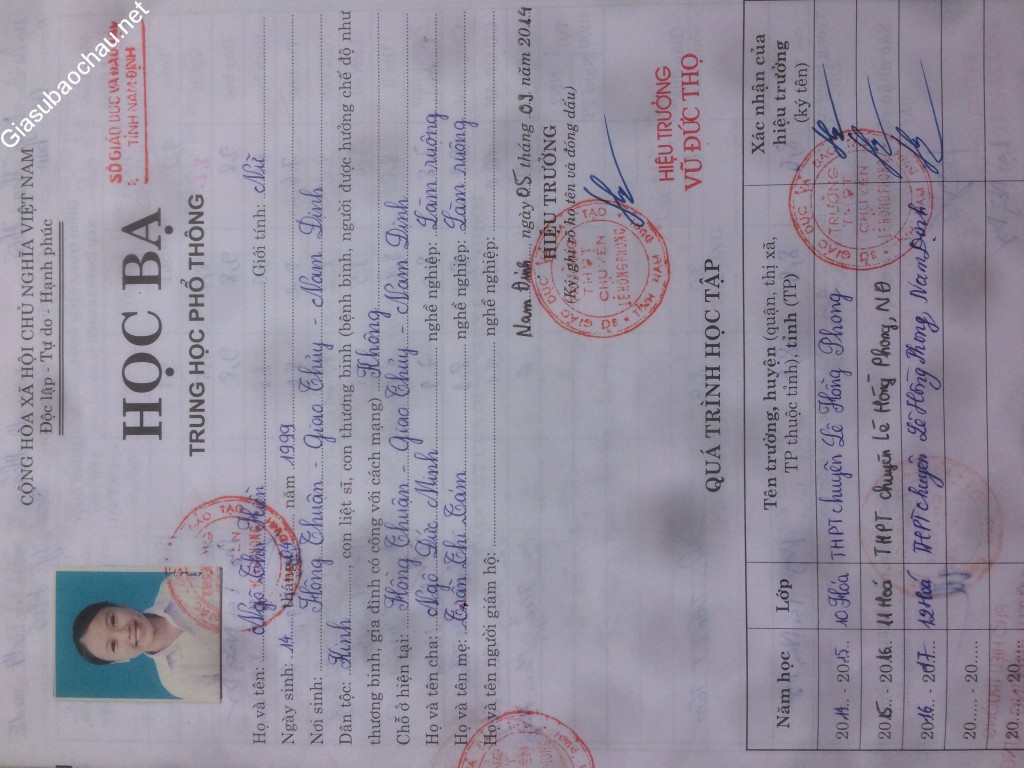 Giasubaochau.net
CỘNG HÒA XÃ HỘI CHỦ NGHĨA VIỆT NAM
Độc lập - Tự do - Hạnh phúc
SỞ GIÁO DỤC VÀ ĐÀO TẠO
TỈNH NAM ĐỊNH
HỌC BẠ
TRUNG HỌC PHỔ THÔNG
Họ và tên: Ngô Thị Giới tính: Nữ
Ngày sinh: 14 tháng năm 1999
Nơi sinh: Hồng Thuận - Giao Thủy - Nam Định
Dân tộc: Kinh, con liệt sĩ, con thương binh (bệnh binh, người được hưởng chế độ như
thương binh, gia đình có công với cách mạng) Không
Chỗ ở hiện tại: Hồng Thuận - Giao Thủy - Nam Định
Họ và tên cha: Ngô Đức Minh nghề nghiệp: Làm ruộng
Họ và tên mẹ: Trần Thị Cam nghề nghiệp: Làm ruộng
Họ và tên người giám hộ: nghề nghiệp:
Nam Định, ngày 05 tháng 09 năm 2014
HIỆU TRƯỞNG
(Ký, ghi rõ họ tên và đóng dấu)
SỞ GIÁO DỤC VÀ ĐÀO TẠO TỈNH NAM ĐỊNH
TRƯỜNG
THPT
CHUYÊN
LÊ HỒNG PHONG
HIỆU TRƯỞNG
VŨ ĐỨC THỌ
QUÁ TRÌNH HỌC TẬP
Năm học Lớp Tên trường, huyện (quận, thị xã, TP thuộc tỉnh), tỉnh (TP) Xác nhận của hiệu trưởng (ký tên)
2014 - 2015 10 Hóa THPT chuyên Lê Hồng Phong
2015 - 2016 11 Hoá THPT chuyên Lê Hồng Phong, NĐ
2016 - 2017 12 Hoá THPT chuyên Lê Hồng Phong Nam Định
20..... - 20.....
20..... - 20.....